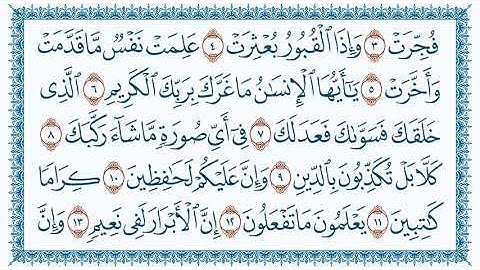 فُجِّرَتْ ٣ وَإِذَا الْقُبُورُ بُعْثِرَتْ ٤ عَلِمَتْ نَفْسٌ مَّا قَدَّمَتْ
وَأَخَّرَتْ ٥ يَٰٓأَيُّهَا الْإِنسَٰنُ مَا غَرَّكَ بِرَبِّكَ الْكَرِيمِ ٦ الَّذِى
خَلَقَكَ فَسَوَّىٰكَ فَعَدَلَكَ ٧ فِىٓ أَىِّ صُورَةٍ مَّا شَآءَ رَكَّبَكَ ٨
كَلَّا بَلْ تُكَذِّبُونَ بِالدِّينِ ٩ وَإِنَّ عَلَيْكُمْ لَحَٰفِظِينَ ١٠ كِرَامًا
كَٰتِبِينَ ١١ يَعْلَمُونَ مَا تَفْعَلُونَ ١٢ إِنَّ الْأَبْرَارَ لَفِى نَعِيمٍ ١٣ وَإِنَّ